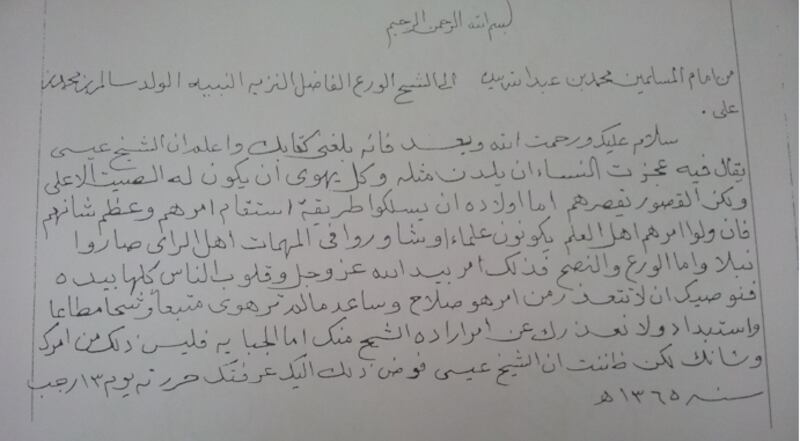 بسم الله الرحمن الرحيم
من امام المسلمين محمد بن عبدالله الى الشيخ الورع الفاضل النزيه النبيه الولد سالم بن محمد بن
على .
سلام عليك ورحمت الله وبعد فانه بلغنى كتابك واعلم ان الشيخ عيسى
يقال فيه عجزت النساء ان يلدن مثله وكل يهوى ان يكون له الصيت الاعلى
ولكن القصور تقصرهم اما اولاده ان يسلكوا طريقة استقام امرهم وعظم شانهم
فان ولوا امرهم اهل العلم يكونون علماء او تشاوروا فى المهمات اهل الراى صاروا
نبلا واما الورع والنصح فذلك امر بيد الله عز وجل وقلوب الناس كلها بيده
فنوصيك ان لا تتعذر من امر هو صلاح وساعد مالم تر هوى متبعا وشحا مطاعا
واستبداد ولا نعذرك عن امر اراده الشيخ منك اما الجبايه فليس ذلك من امرك
وشانك لكن ظننت ان الشيخ عيسى فوض ذلك اليك عرفتك حررته يوم ١٣ رجب
سنه ١٣٦٥ه